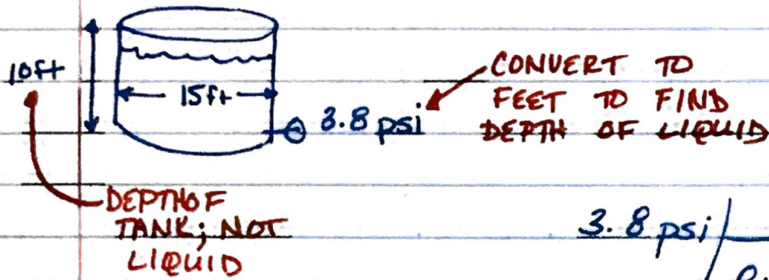 10ft
15ft
3.8 psi
CONVERT TO
FEET TO FIND
DEPTH OF LIQUID
DEPTH OF
TANK; NOT
LIQUID
3.8 psi